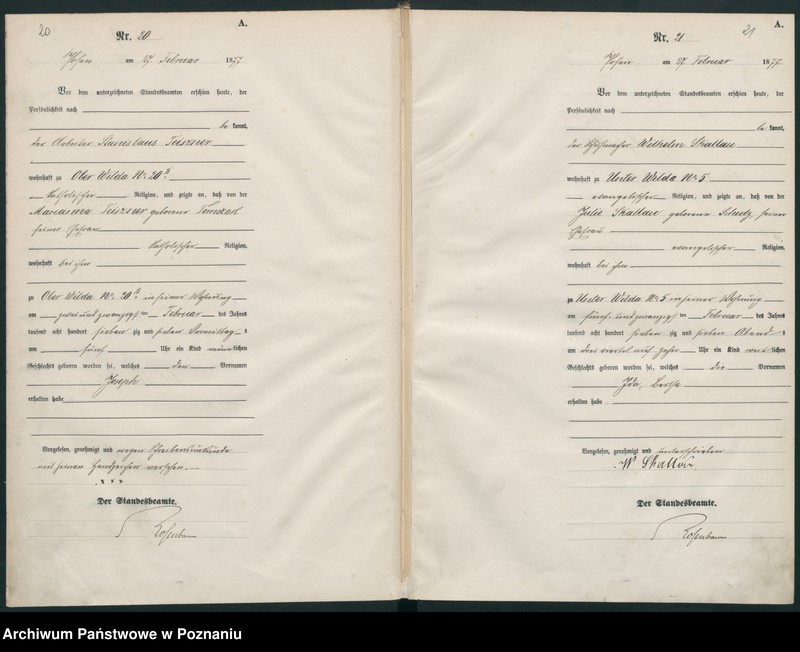 20
A.
Nr. 20
Posen am 27. Februar 1877
Vor dem unterzeichneten Standesbeamten erschien heute, der
Persönlichkeit nach
be kannt,
der Arbeiter Stanislaus
wohnhaft zu Ober Wilda No 20
katholischer Religion, und zeigte an, daß von der
geborene
seiner Ehefrau
katholischer Religion,
wohnhaft bei ihm
zu Ober Wilda No 20 in seiner Wohnung
am zwei und zwanzigsten Februar des Jahres
tausend acht hundert sieben zig und sieben Vormittags
um fünf Uhr ein Kind männlichen
Geschlechts geboren worden sei, welches den Vornamen
Joseph
erhalten habe
Vorgelesen, genehmigt und wegen Schreibensunkunde
mit seinen Handzeichen versehen.
x x x
Der Standesbeamte.
Rosenbaum
21
A.
Nr. 21
Posen am 27. Februar 1877
Vor dem unterzeichneten Standesbeamten erschien heute, der
Persönlichkeit nach
be kannt,
der Wilhelm Skallau
wohnhaft zu Unter Wilda No 5
evangelischer Religion, und zeigte an, daß von der
Julie Skallau geborene Schulz, seiner
Ehefrau
evangelischer Religion,
wohnhaft bei ihm
zu Unter Wilda No 5 in seiner Wohnung
am fünf und zwanzigsten Februar des Jahres
tausend acht hundert sieben zig und sieben Abend s
um drei viertel auf zehn Uhr ein Kind weib lichen
Geschlechts geboren worden sei, welches die Vornamen
Ida, Bertha
erhalten habe.
Vorgelesen, genehmigt und unterschrieben
W Skallau
Der Standesbeamte.
Rosenbaum
Archiwum Państwowe w Poznaniu